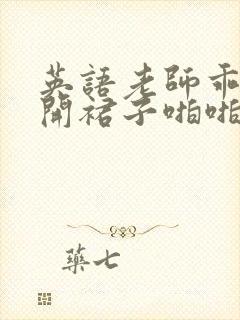 英語老師乖
開裙子啪啪
藥七